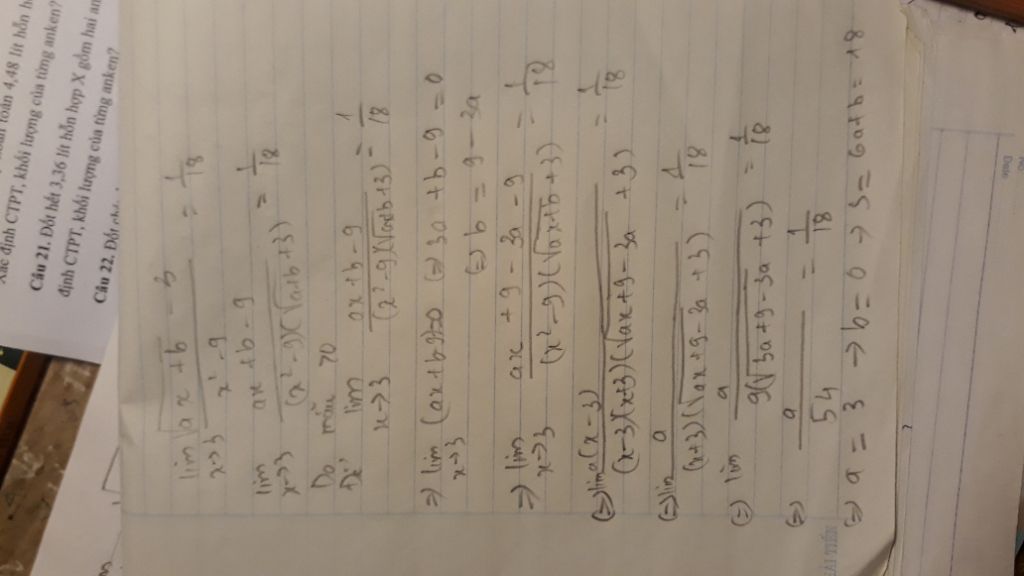 Xác định CTPT, khối lượng của từng anken?
Câu 21. Đốt hết 3,36 lít hỗn hợp X gồm hai an
định CTPT, khối lượng của từng anken?
Câu 22. Đốt
lim x→3 (√(ax + b) - 3)/(x² - 9) = 1/18
lim x→3 (ax + b - 9)/((x² - 9)(√(ax+b) + 3)) = 1/18
Do mẫu →0
Để lim x→3 (ax + b - 9)/((x² - 9)(√(ax+b) + 3)) = 1/18
=> lim x→3 (ax + b - 9) = 0 (=) 3a + b - 9 = 0
(=) b = 9 - 3a
=> lim x→3 (ax + 9 - 3a - 9)/((x² - 9)(√(ax+b) + 3)) = 1/18
(=) lim a(x - 3)/((x - 3)(x+3)(√(ax+9 - 3a) + 3)) = 1/18
(=) lim a/((x+3)(√(ax+9 - 3a) + 3)) = 1/18
(=) lim a/(9(√(3a+9-3a) + 3)) = 1/18
(=) a/54 = 1/18
(=) a = 3 → b = 0 → S = 6a + b = 18